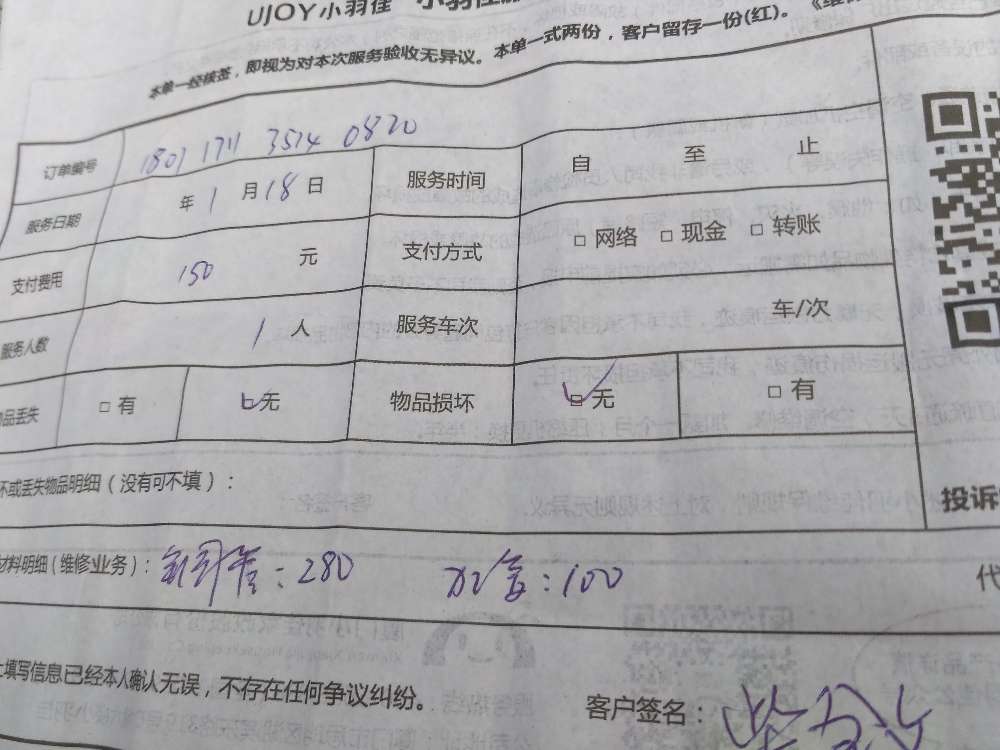 UJOY小羽佳 小羽佳
本单一经核签，即视为对本次服务验收无异议。本单一式两份，客户留存一份(红)。
订单编号 1801 1711 3514 0820 服务时间 自 至 止
服务日期 年 1 月 18 日
支付费用 150 元 支付方式 □ 网络 □ 现金 □ 转账
服务人数 1 人 服务车次 车/次
品丢失 □ 有 □ 无 物品损坏 □ 无 □ 有
不或丢失物品明细（没有可不填）：
投诉
材料明细(维修业务)：铜管：280 加氟：100
代
填写信息已经本人确认无误，不存在任何争议纠纷。
客户签名：